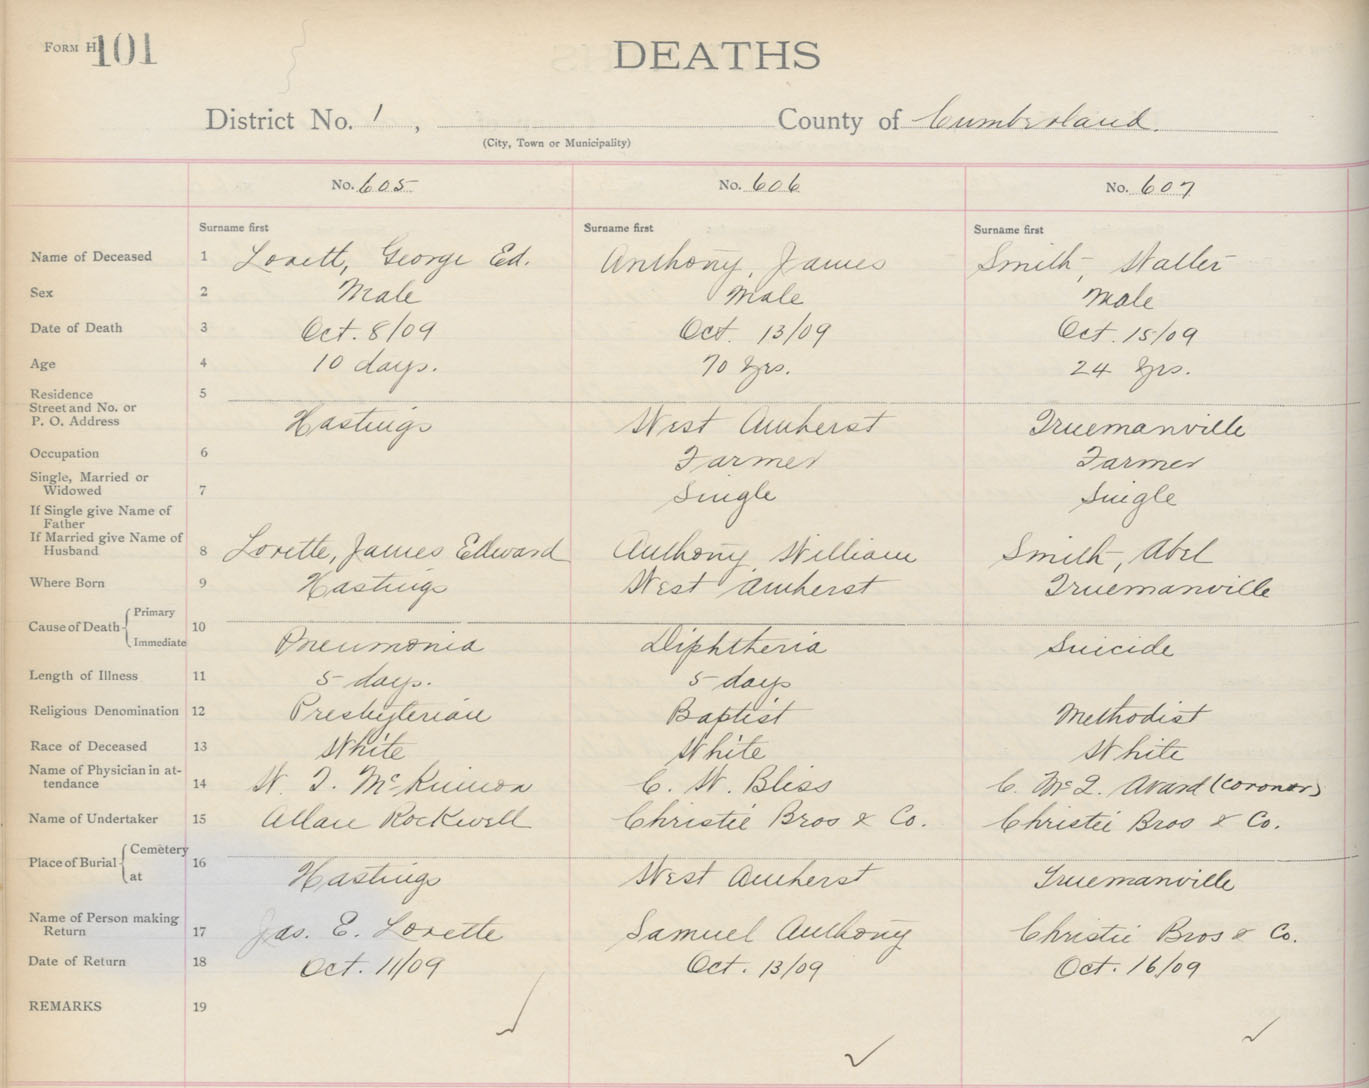 FORM H. 101
DEATHS
District No. 1, County of Cumberland.
(City, Town or Municipality)
No. 605 No. 606 No. 607
Surname first Surname first Surname first
Name of Deceased 1 Lorett, George Ed. Anthony, James Smith, Walter
Sex 2 Male Male Male
Date of Death 3 Oct. 8/09 Oct. 13/09 Oct. 15/09
Age 4 10 days. 70 Yrs. 24 Yrs.
Residence 5
Street and No. or
P. O. Address Hastings West Amherst Truemanville
Occupation 6 Farmer Farmer
Single, Married or
Widowed 7 Single Single
If Single give Name of
Father
If Married give Name of
Husband 8 Lorette, James Edward Anthony, William Smith, Abel
Where Born 9 Hastings West Amherst Truemanville
Cause of Death Primary 10
Immediate Pneumonia Diphtheria Suicide
Length of Illness 11 5 days. 5 days
Religious Denomination 12 Presbyterian Baptist Methodist
Race of Deceased 13 White White White
Name of Physician in at-
tendance 14 W. T. McKinnon C. W. Bliss C. McQ. Avard (Coroner)
Name of Undertaker 15 Allan Rockwell Christie Bros & Co. Christie Bros & Co.
Place of Burial Cemetery 16
at Hastings West Amherst Truemanville
Name of Person making
Return 17 Jas. E. Lorette Samuel Anthony Christie Bros & Co.
Date of Return 18 Oct. 11/09 Oct. 13/09 Oct. 16/09
REMARKS 19